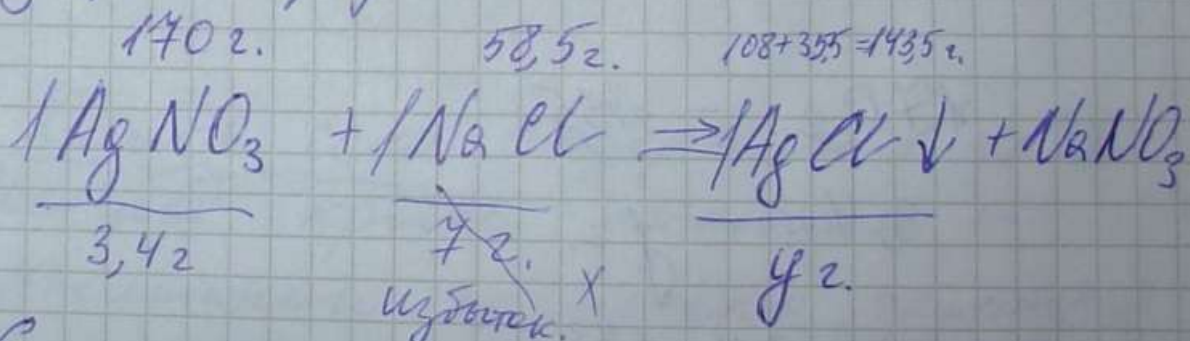 170 г. 58,5 г. 108+35,5=143,5 г.
1AgNO₃ + 1NaCl ⇒ 1AgCl↓ + NaNO₃
3,4 г 7 г. y г.
избыток. X